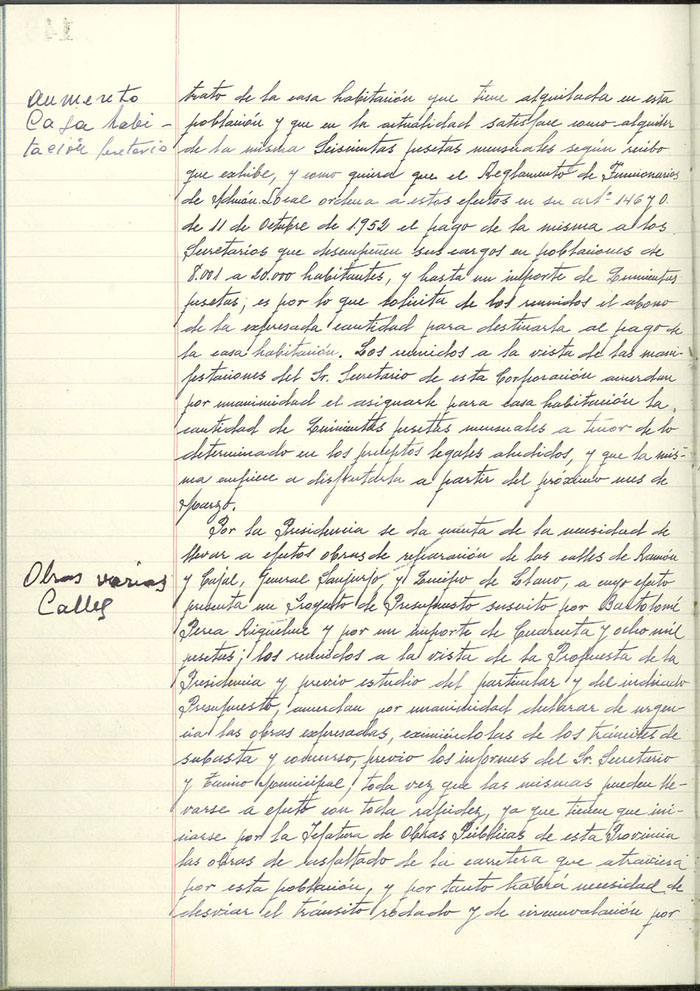 aumento
Casa habi-
tación secretario
trato de la casa habitación que tiene alquilada en esta
población y que en la actualidad satisface como alquiler
de la misma Seiscientas pesetas mensuales según recibo
que exhibe, y como quiera que el Reglamento de Funcionarios
de Admón. Local ordena a estos efectos en su artº 146 y O.
de 11 de Octubre de 1952 el pago de la misma a los
Secretarios que desempeñen sus cargos en poblaciones de
8.001 a 20.000 habitantes, y hasta un importe de Quinientas
pesetas; es por lo que solicita de los reunidos el abono
de la expresada cantidad para destinarla al pago de
la casa habitación. Los reunidos a la vista de las mani-
festaciones del Sr. Secretario de esta Corporación acuerdan
por unanimidad el asignarle para casa habitación la
cantidad de Quinientas pesetas mensuales a tenor de lo
determinado en los preceptos legales aludidos, y que la mis-
ma empiece a disfrutarla a partir del próximo mes de
Marzo.
Obras varias
Calles
Por la Presidencia se da cuenta de la necesidad de
llevar a efectos obras de reparación de las calles de Ramón
y Cajal, General Sanjurjo y Queipo de Llano, a cuyo efecto
presenta un Proyecto de Presupuesto suscrito por Bartolomé
Perea Riquelme y por un importe de Cuarenta y ocho mil
pesetas; los reunidos a la vista de la Propuesta de la
Presidencia y previo estudio del particular y del indicado
Presupuesto, acuerdan por unanimidad declarar de urgen-
cia las obras expresadas, eximiéndolas de los trámites de
subasta y concurso, previo los informes del Sr. Secretario
y Técnico Municipal, toda vez que las mismas pueden lle-
varse a efecto con toda rapidez, ya que tienen que ini-
ciarse por la Jefatura de Obras Públicas de esta Provincia
las obras de asfaltado de la carretera que atraviesa
por esta población, y por tanto habrá necesidad de
desviar el tránsito rodado y de circunvalación por